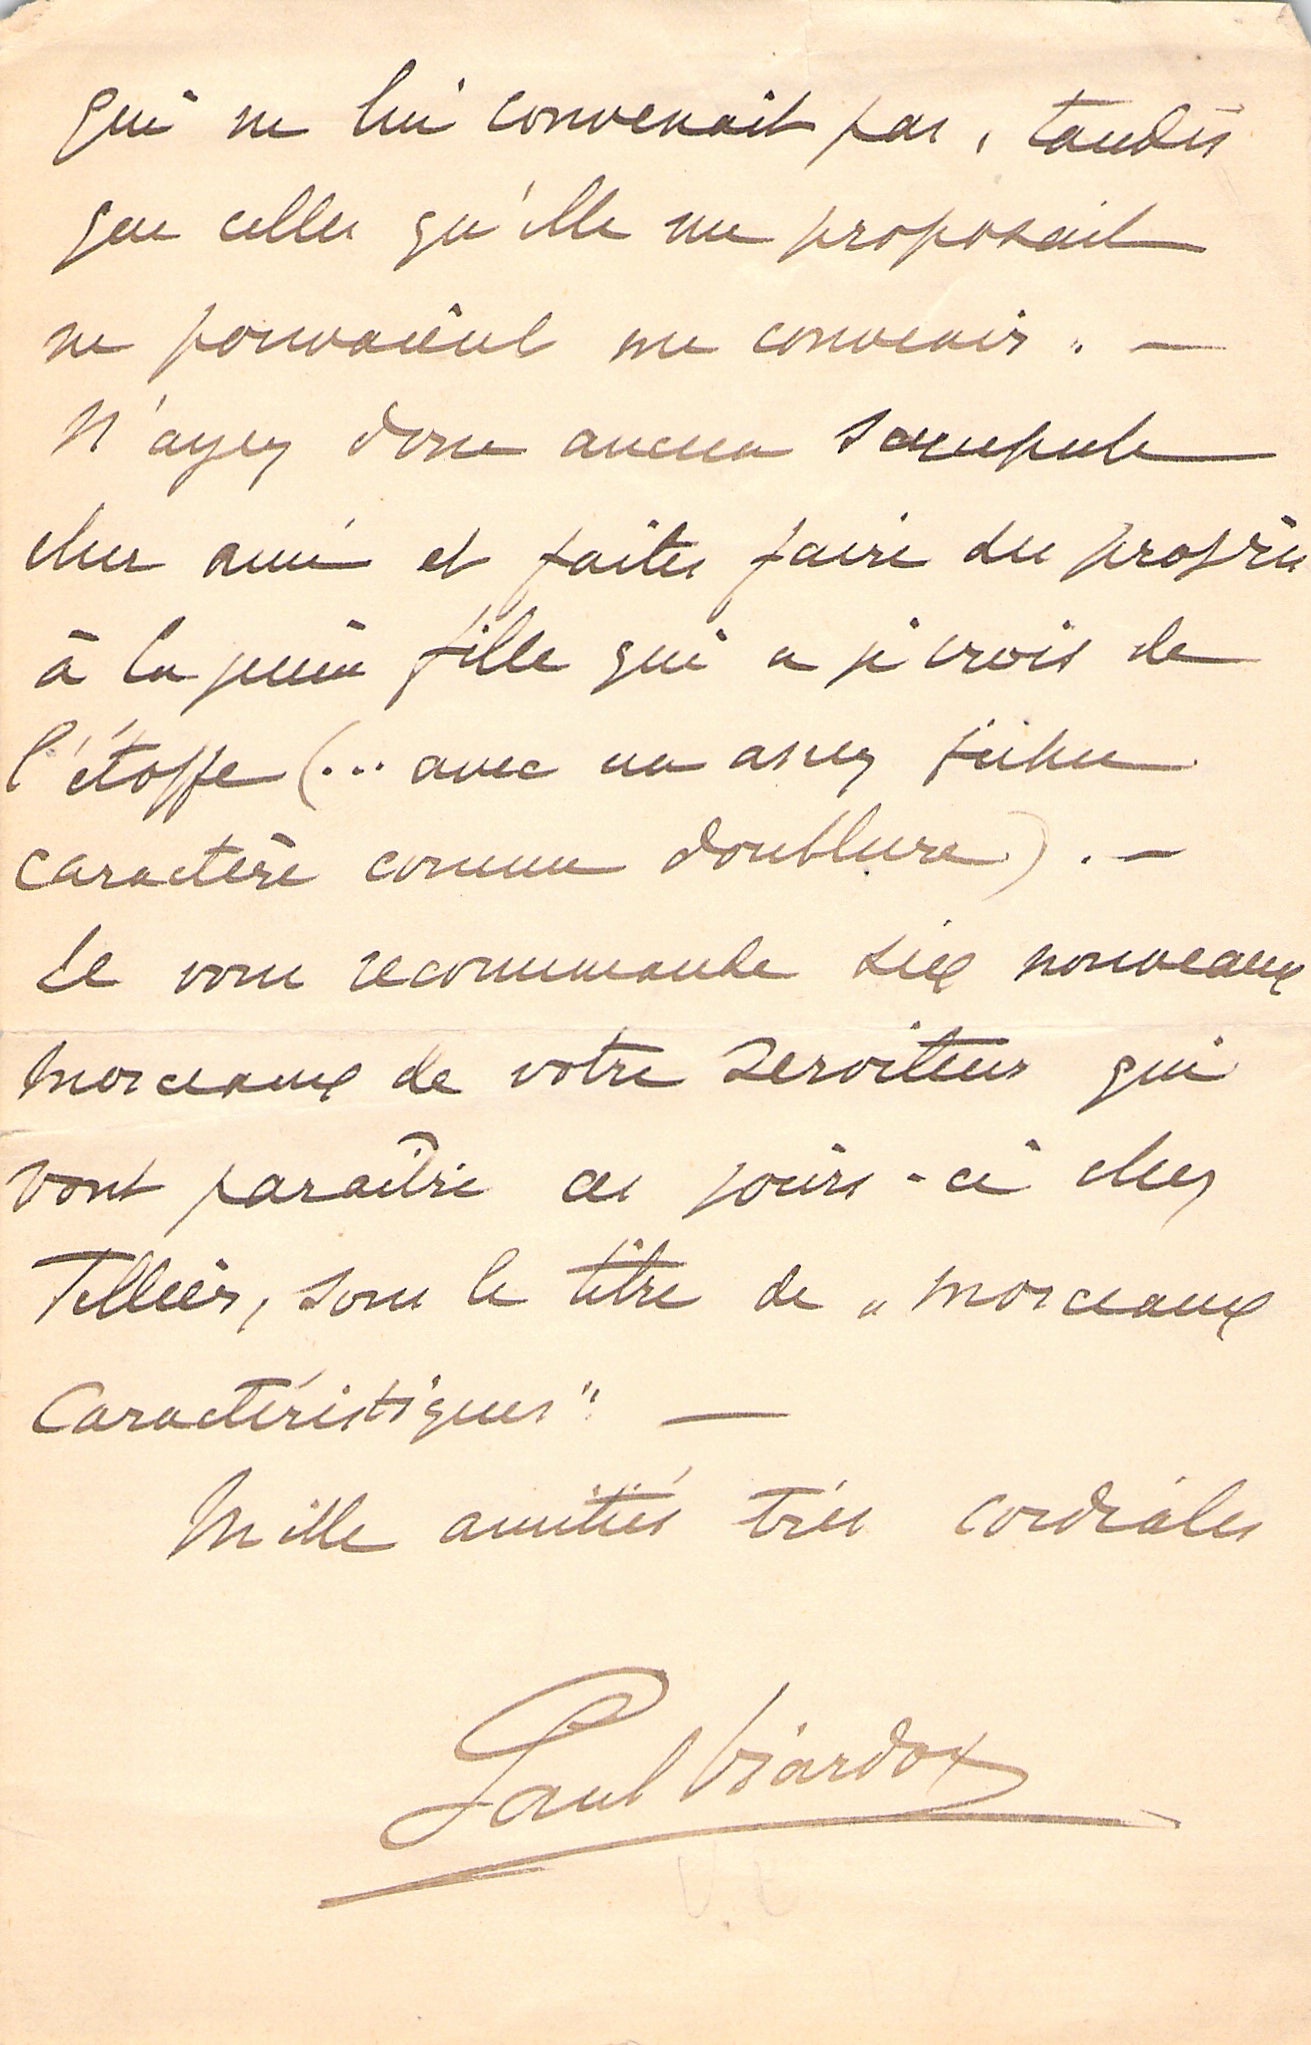 qui ne lui convenait pas, tandis
que celles qu'elle me proposait
ne pouvaient me convenir. —
N'ayez donc aucun scrupule
cher ami et faites faire des progrès
à la jeune fille qui a je crois de
l'étoffe (... avec un assez fichu
caractère comme doublure). —
Je vous recommande six nouveaux
morceaux de votre serviteur qui
vont paraître ces jours-ci chez
Tellier, sous le titre de „morceaux
caractéristiques". —
Mille amitiés très cordiales
Paul Viardot